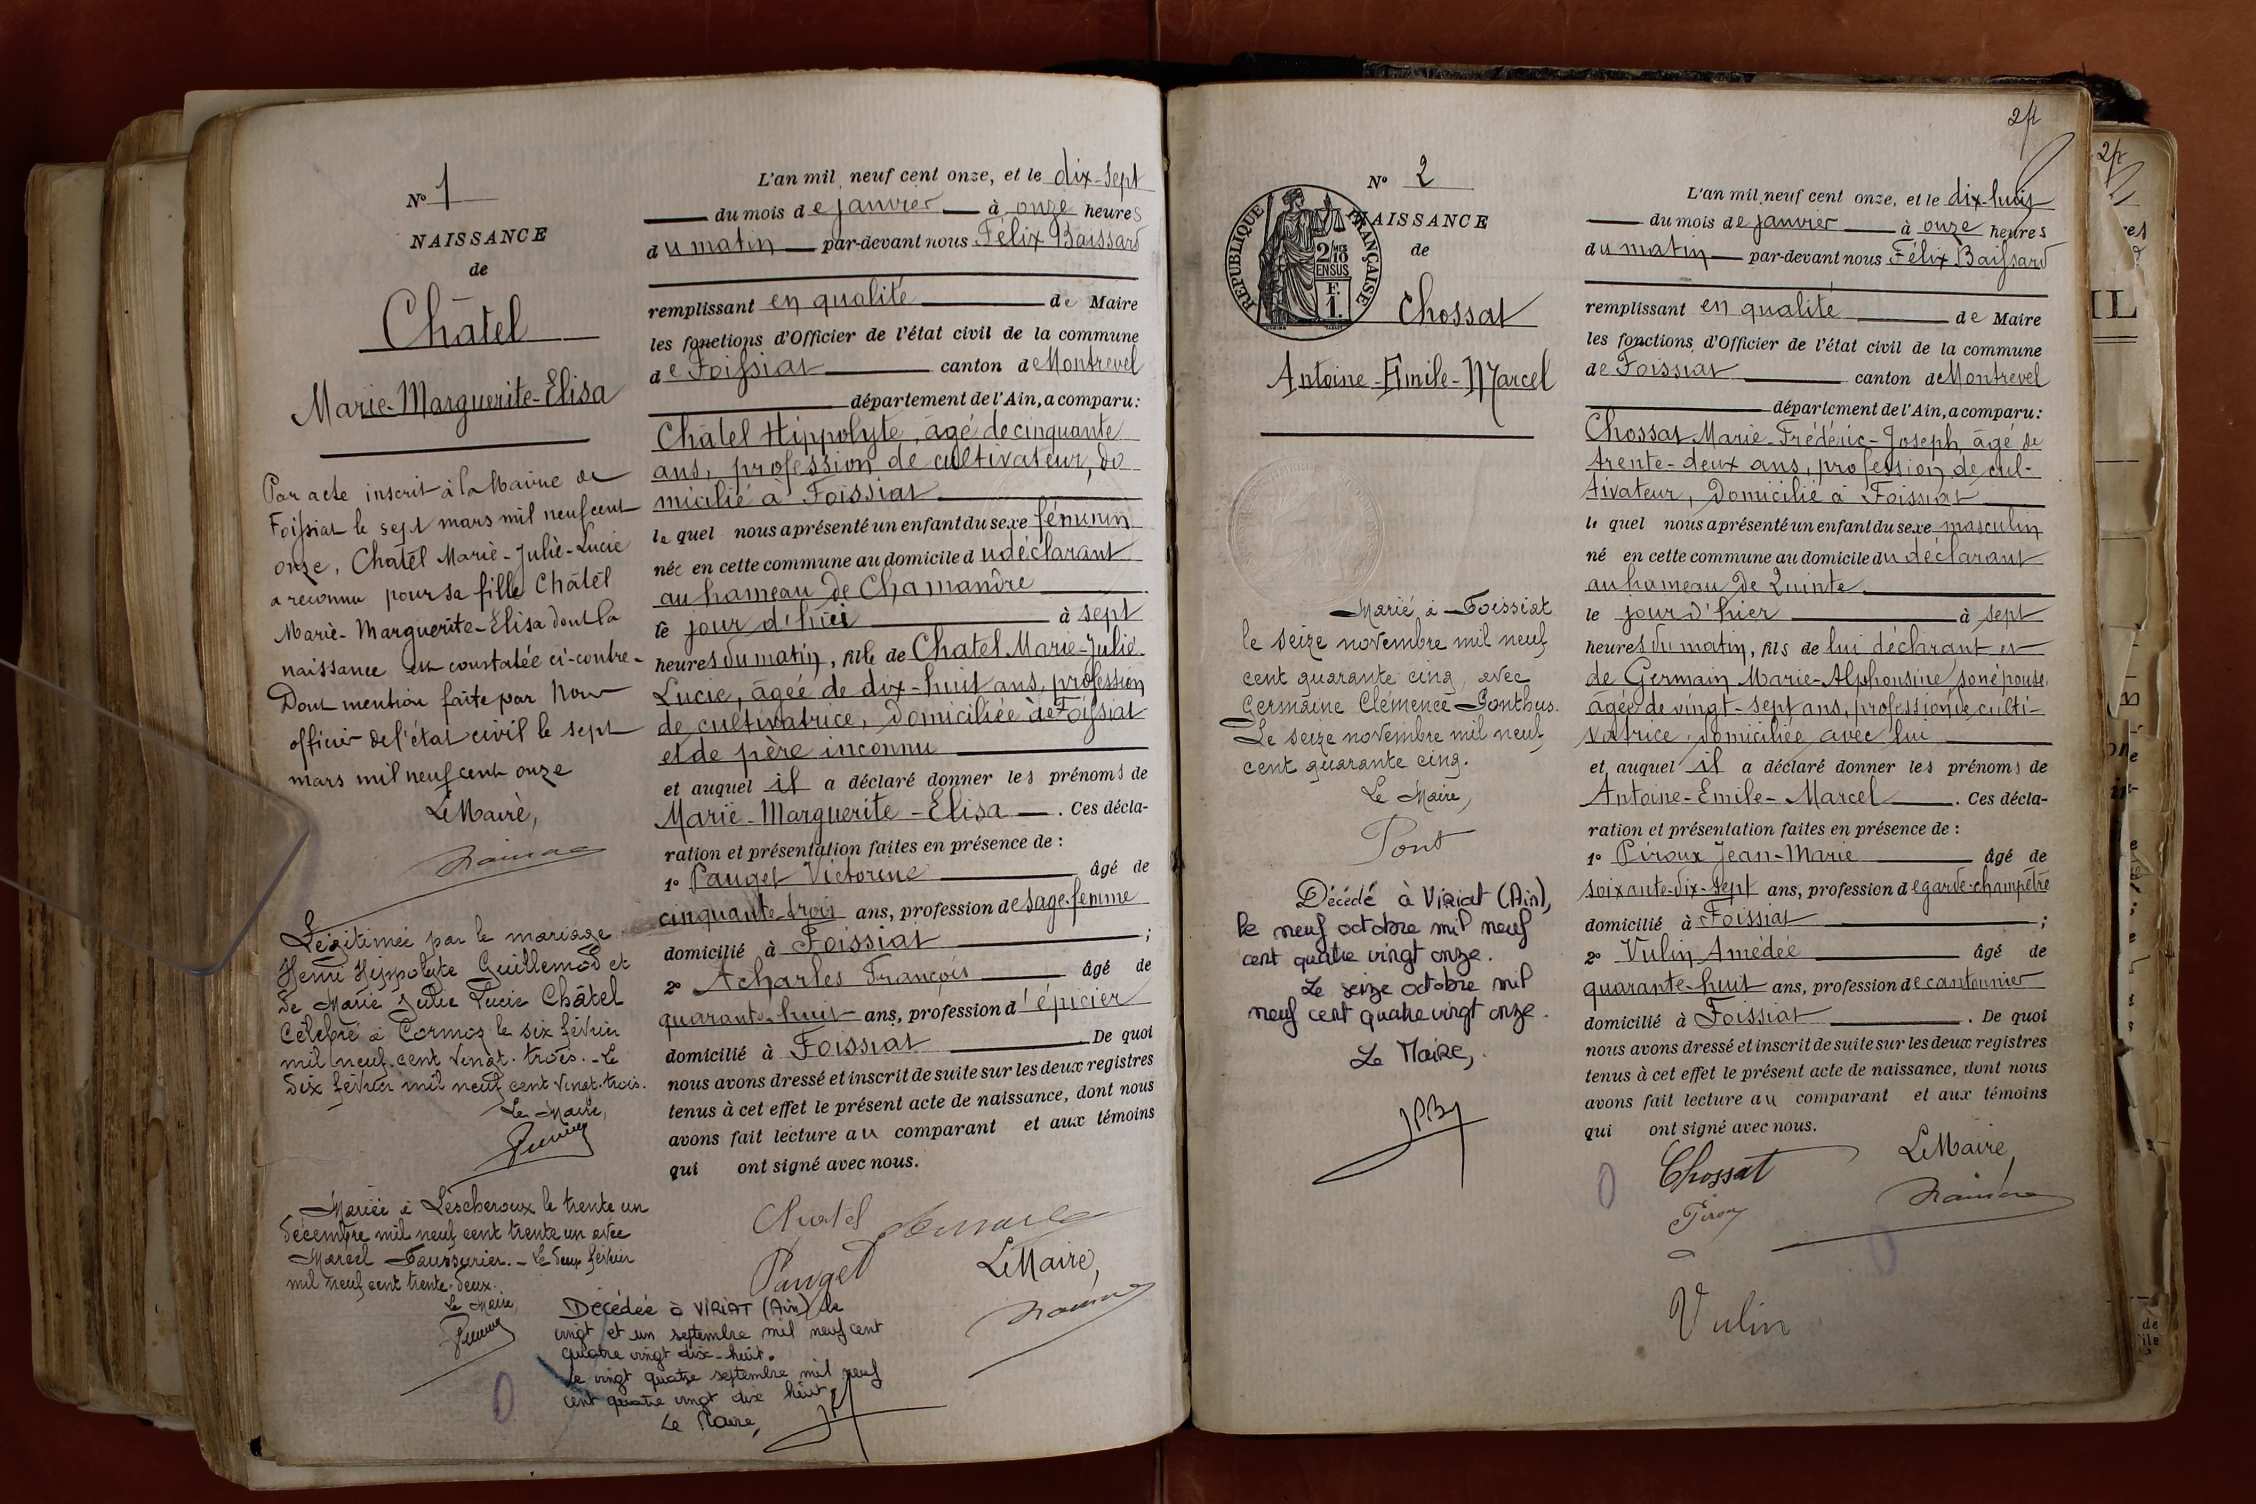 N° 1
NAISSANCE
de
Châtel
Marie-Marguerite-Elisa
Par acte inscrit à la Mairie de
Foissiat le sept mars mil neuf cent
onze, Chatel Marie-Julie-Lucie
a reconnu pour sa fille Châtel
Marie-Marguerite-Elisa dont la
naissance est constatée ci-contre-
Dont mention faite par Nous
officier de l'état civil le sept
mars mil neuf cent onze
Le Maire,
Légitimée par le mariage
Henri Hippolyte Guillemod et
de Marie Julie Lucie Châtel
Célébré à Cormoz le six février
mil neuf cent vingt-trois.-Le
dix février mil neuf cent vingt-trois.
Le Maire,
Mariée à Lescheroux le trente un
décembre mil neuf cent trente un avec
Marcel Faussurier.- Le deux février
mil neuf cent trente-deux.
Le Maire,
L'an mil neuf cent onze, et le dix-sept
du mois de janvier à onze heures
du matin par-devant nous Félix Baissard
remplissant en qualité de Maire
les fonctions d'Officier de l'état civil de la commune
de Foissiat canton de Montrevel
département de l'Ain, a comparu:
Châtel Hippolyte, âgé de cinquante
ans, profession de cultivateur, do
micilié à Foissiat
le quel nous a présenté un enfant du sexe féminin
née en cette commune au domicile du déclarant
au hameau de Chamandre
le jour d'hier à sept
heures du matin, fille de Chatel Marie-Julie-
Lucie, âgée de dix-huit ans, profession
de cultivatrice, domiciliée de Foissiat
et de père inconnu
et auquel il a déclaré donner les prénoms de
Marie-Marguerite-Elisa. Ces décla-
ration et présentation faites en présence de :
1° Pauget Victorine âgé de
cinquante trois ans, profession de sage-femme
domicilié à Foissiat ;
2° Acharles François âgé de
quarante-huit ans, profession d'épicier
domicilié à Foissiat De quoi
nous avons dressé et inscrit de suite sur les deux registres
tenus à cet effet le présent acte de naissance, dont nous
avons fait lecture au comparant et aux témoins
qui ont signé avec nous.
Chatel
Pauget
Le Maire,
Décédée à VIRIAT (Ain) le
vingt et un septembre mil neuf cent
quatre vingt dix-huit.
Le vingt quatre septembre mil neuf
cent quatre vingt dix huit
Le Maire,
2
N° 2
NAISSANCE
de
RÉPUBLIQUE FRANÇAISE
2/10
EN SUS
F.
1.
Chossat
Antoine-Emile-Marcel
Marié à Foissiat
le seize novembre mil neuf
cent quarante cinq, avec
Germaine Clémence Ponthus.
Le seize novembre mil neuf
cent quarante cinq.
Le Maire,
Pont
Décédé à VIRIAT (Ain),
le neuf octobre mil neuf
cent quatre vingt onze.
Le seize octobre mil
neuf cent quatre vingt onze.
Le Maire,
L'an mil neuf cent onze, et le dix-huit
du mois de janvier à onze heures
du matin par-devant nous Félix Baissard
remplissant en qualité de Maire
les fonctions d'Officier de l'état civil de la commune
de Foissiat canton de Montrevel
département de l'Ain, a comparu:
Chossat Marie-Frédéric-Joseph, âgé de
trente-deux ans, profession de cul-
tivateur, domicilié à Foissiat
le quel nous a présenté un enfant du sexe masculin
né en cette commune au domicile du déclarant
au hameau de Quinte
le jour d'hier à sept
heures du matin, fils de lui déclarant et
de Germain Marie-Alphonsine, son épouse,
âgée de vingt-sept ans, profession de culti-
vatrice, domiciliée avec lui
et auquel il a déclaré donner les prénoms de
Antoine-Emile-Marcel. Ces décla-
ration et présentation faites en présence de :
1° Piroux Jean-Marie âgé de
soixante-dix-sept ans, profession de garde-champêtre
domicilié à Foissiat ;
2° Vulin Amédée âgé de
quarante-huit ans, profession de cantonnier
domicilié à Foissiat . De quoi
nous avons dressé et inscrit de suite sur les deux registres
tenus à cet effet le présent acte de naissance, dont nous
avons fait lecture au comparant et aux témoins
qui ont signé avec nous.
Chossat
Le Maire,
Piroux
Vulin